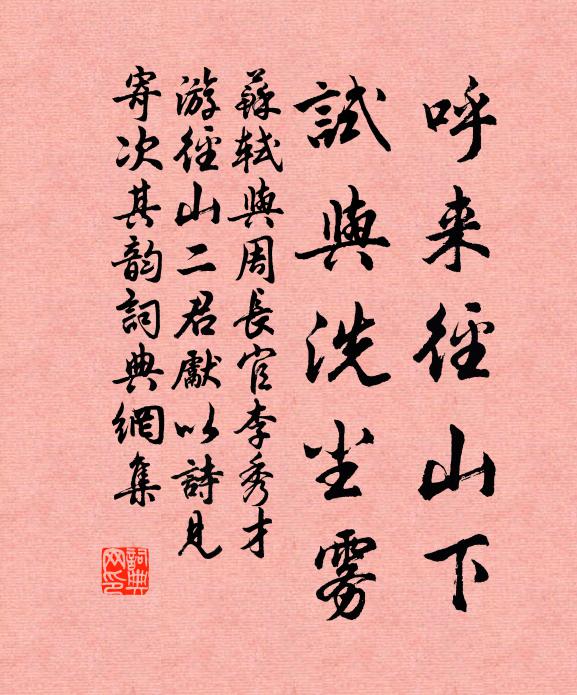 呼来徑山下
試與洗尘雾
蘇軾與周長官李秀才
游徑山二君獻以詩見
寄次其韵詞典網集
詞典网印